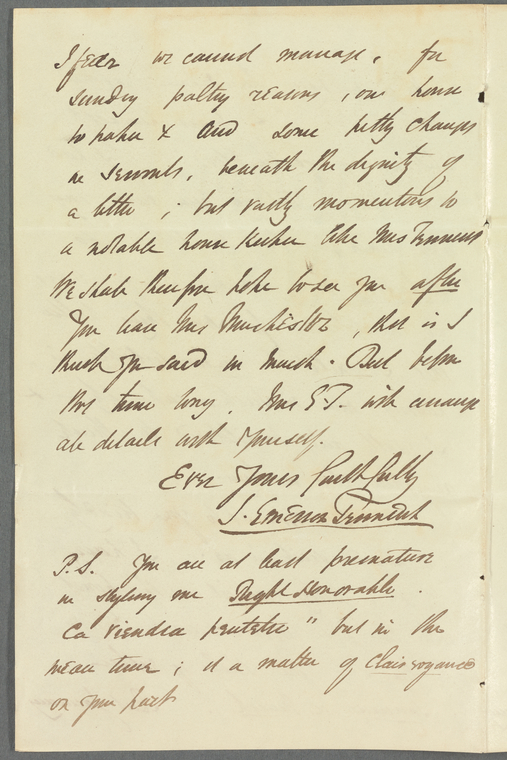 I fear we cannot manage, for
sundry paltry reasons, one house
to & and some petty changes
in servants, beneath the dignity of
a letter; but vastly momentous to
a notable house keeper like Mrs Tennent
We shall therefore hope to see you after
you leave Mrs, that is I
think you said in March. But before
that time Mrs E.T. will arrange
all details with yourself.
Ever Yours faithfully
J. Emerson Tennent
P.S. You are at least premature
in styling me Right Honorable.
Ca viendra peutetre" but in the
mean time; it a matter of Clairvoyance
on your part